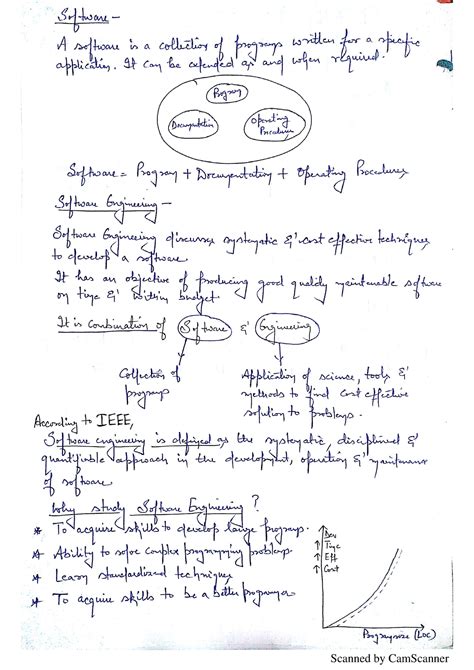 Software -
A software is a collection of programs written for a specific
application. It can be as and when required.
Program
Documentation
Operating
Procedures
Software = Program + Documentation + Operating Procedures
Software Engineering -
Software Engineering discusses systematic & cost effective techniques
to develop a software
It has an objective of producing good quality maintainable software
on time & within budget
It is combination of Software & Engineering
Collection of
programs
Application of science, tools &
methods to find cost effective
solution to problems.
According to IEEE,
Software engineering is defined as the systematic, disciplined &
quantifiable approach in the development, operation & maintenance
of software
Why study Software Engineering?
* To acquire skills to develop large programs.
* Ability to solve complex programming problems
* Learn standardized techniques
* To acquire skills to be a better programmer
↑ Dev
↑ Time
↑ Eff
↑ Cost
Program size (LOC)
Scanned by CamScanner